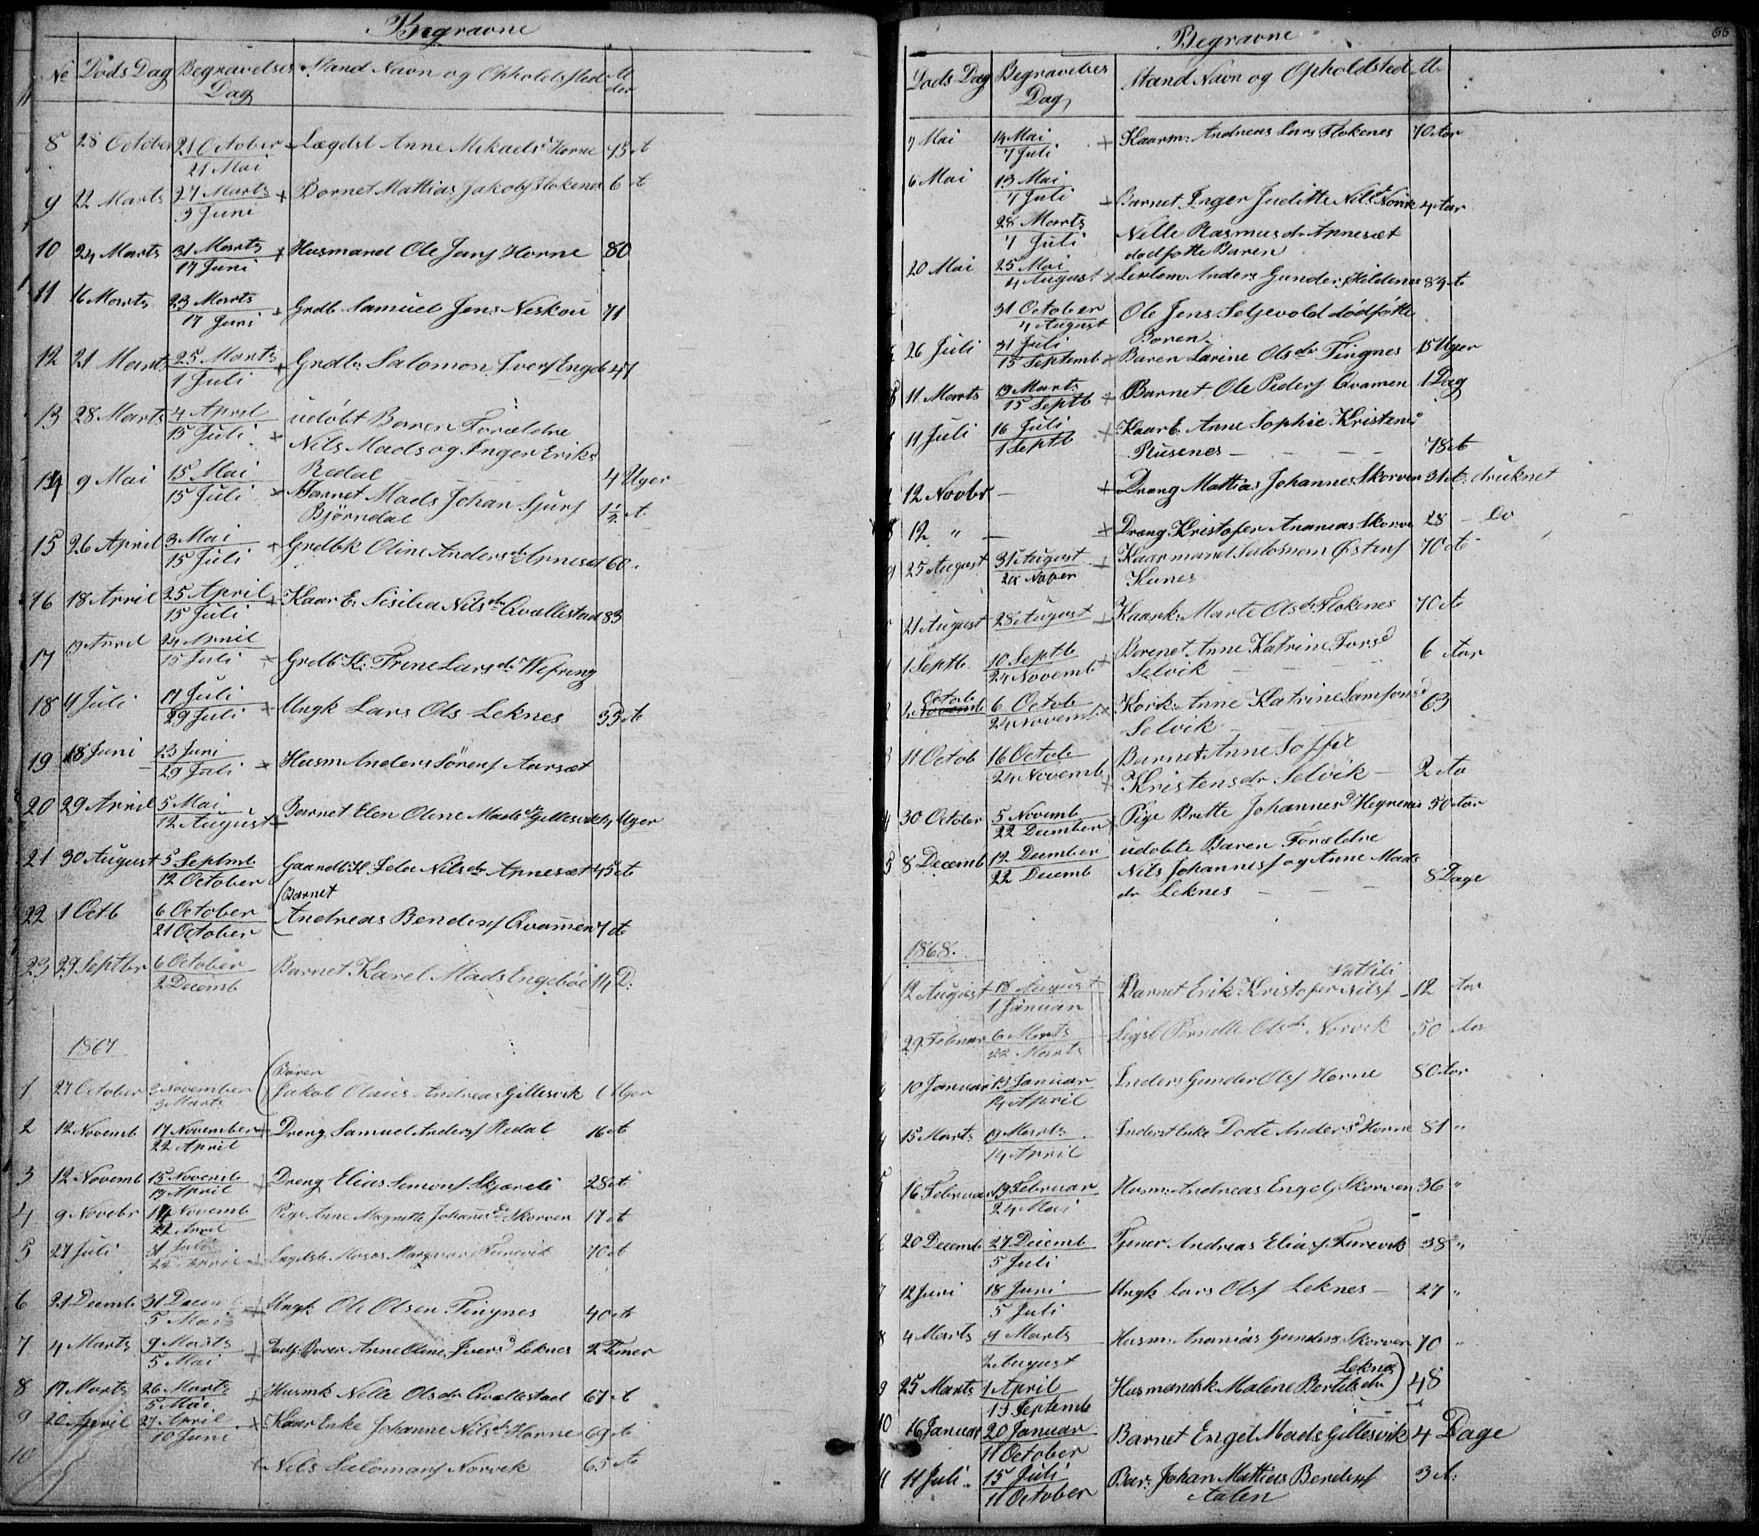 Begravne
No Döds Dag Begravelses Dag Stand Navn og Opholdsted Alder
8 28 October 21 October / 21 Mai Lægdsl Anne Mikaelsd Horne 75 A
9 22 Marts 27 Marts / 3 Juni + Barnet Mathias Jakobs Flokenes 6 A
10 24 Marts 31 Marts / 17 Juni + Husmand Ole Jens Horne 80
11 16 Marts 23 Marts / 17 Juni + Grdb Samuel Jens Neskou 71
12 21 Marts 25 Marts / 1 Juli + Grdb Salomon Ivers Engeb 47
13 28 Marts 4 April / 15 Juli + udöbt Baren Forældre
Nils Mads og Inger Eriks
Redal 4 Uger
14 9 Mai 15 Mai / 15 Juli + Barnet Mads Johan Sjurs
Björndal 1½ A
15 26 April 3 Mai / 15 Juli + Grdbk Oline Andersdr Apneset 60
16 18 April 25 April / 15 Juli + Kaar E. Sisilia Nilsdr Qvallestad 83
17 19 April 24 April / 15 Juli + Grdb K. Trine Larsdr Wefring
18 11 Juli 17 Juli / 29 Juli + Ungk Lars Ols Leknes 35 A
19 18 Juni 23 Juni / 29 Juli + Husm Anders Sörens Aarsæt
20 29 April 5 Mai / 12 August + Barnet Elen Oline Madsd Gillesvik 14 Uger
21 30 August 5 Septmb / 12 October Gaardb K Nilsdr Apnesæt 45 A
22 1 Octb 6 October / 21 October (Barnet
Andreas Benders Qvamen 7 A
23 29 Septbr 6 October / 2 Decemb Barnet Karel Mads Engeböe 14 D.
1867
1 27 October 3 November / 3 Marts (Baren
Jakob Olaus Andreas Gillesvik Uger
2 12 Novemb 17 November / 22 April + Dreng Samuel Anders Redal 16 A
3 12 Novemb 15 Novemb / 19 April + Dreng Elias Simons Skjæreli 28 A
4 9 Novebr 14 Novemb / 22 April Pige Anne Magrette Johansd Skorven 17 A
5 27 Juli 31 Juli / April Lægdsl Furevik 70 A
6 21 Decemb 31 Decemb / 5 Mai + Ungk Ole Olsen Tingnes 40 A
7 4 Marts 9 Marts / 5 Mai + Baren Anne Oline Iversd Leknes 2 Timer
8 17 Marts 26 Marts / 5 Mai + Husmk Nelle Olsdr Qvallestad 67 A
9 20 April 27 April / 10 Juni + Kaar Enke Johanne Nilsd Horne 69 A
10 Nils Salomons Norvik 65 A
Begravne 66
Döds Dag Begravelses Dag Stand Navn og Opholdsted Al.
7 Mai 14 Mai / 7 Juli + Kaarm: Andreas Lars Flokenes 70 Aar
6 Mai 13 Mai / 7 Juli + Barnet Inger Juditte Nilsd Norvik 4 Aar
28 Marts / 7 Juli Nelle Rasmusdr Apnesæt
dödfötte Baren
20 Mai 25 Mai / 4 August + Anders Gunders Hildenes 84 A
31 October / 4 August Ole Jens Seljevold dödfötte
Baren
26 Juli 31 Juli / 15 Septemb + Baren Larine Olsdr Tingnes 15 Uger
11 Marts 19 Marts / 15 Septb + Barnet Ole Peders Qvamen 1 Dag
11 Juli 16 Juli / 1 Septb + Kaar E. Anne Sophie Kristensd
Rusenes 78 A
12 Novbr + Dreng Mathias Johannes Skorven 31 A. druknet
12 " + Dreng Kristofer Ananias Skorve 28 Do
25 August 31 August / 24 Nover + Kaarmand Salomon Östens 70 A
Kunes
21 August 28 August + Kaark: Marte Olsdr Flokenes 70 A
1 Septb. 10 Septb / 24 Novemb + Barnet Anne Katrine Torsd 6 Aar
Selvik
Octob 6 Octob / 24 Novemb + Anne Katrine Samsonsd 63
Selvik
11 Octob 16 Octob / 24 Novemb + Barnet Anne Soffie
Kristensdr Selvik 2 Aa
30 October 5 Novemb / 22 December + Pige Britte Johannesd Heynene 50 Aar
8 Decemb 12 December / 22 Decemb udöbte Baren Forældre
Nils Johannes og Anne Mads
dr Leknes 8 Dage
1868.
12 August 18 August / 1 Januar Barnet Erik Kristofer Nils 12 Aar
29 Februar 6 Marts / 22 Marts Legsl Pernille Olsdr Norvik 50 Aar
10 Januar 13 Januar / 14 April Inders Gunder Ols Horne 80 Aar
15 Marts 19 Marts / 14 April Inderst Enke Dorte Andersd Horne 81 "
16 Februar 19 Februar / 24 Mai Husm: Andreas Engels Skorven 36 "
20 Decemb 27 Decemb / 5 Juli Tjener Andreas Elias Furevik 38 "
7 12 Juni 18 Juni / 5 Juli Ungk Lars Ols Leknes 27 "
8 4 Marts 9 Marts / 2 August Husm. Ananias Gunders Skorven 70 "
9 25 Marts 1 April / 13 Septemb Husmandsk Malene Bertelsdr Leknes) 48
10 16 Januar 20 Januar / 11 October Barnet Engel Mads Gillesvik 4 Dage
11 11 Juli 15 Juli / 11 October Bar: Johan Mathias Benders 3 A.
Aalen